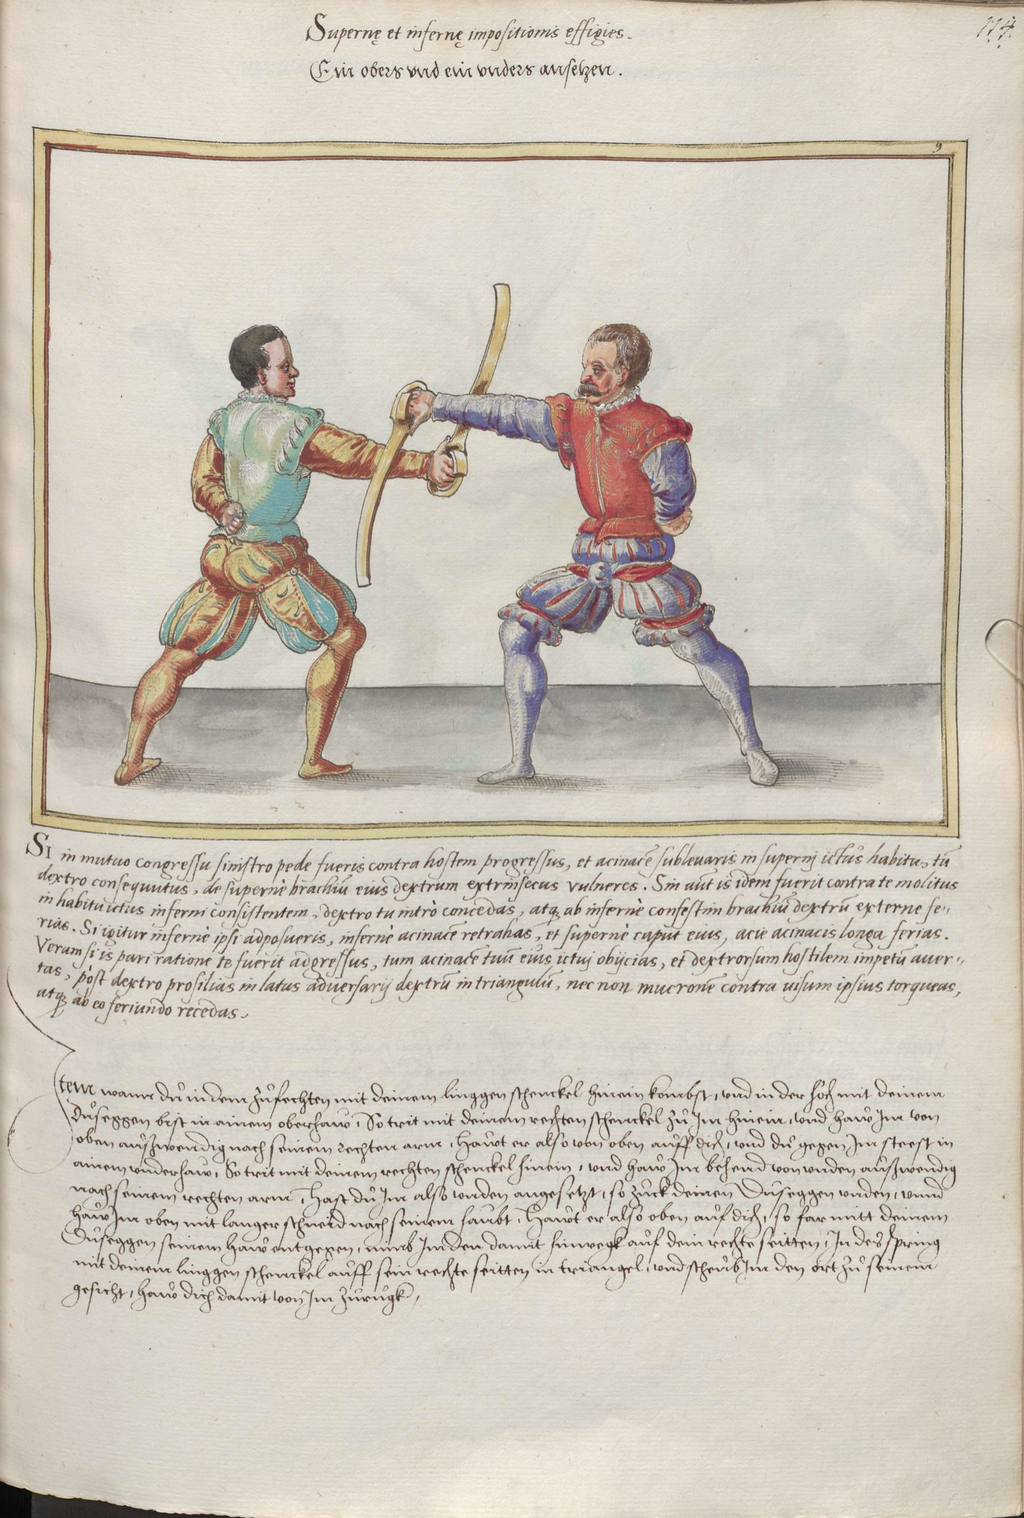 Supernę et infernę impositionis effigies.
Ein obers vnd ein vnders ansetzen.
114.
9
SI in mutuo congressu sinistro pede fueris contra hostem progressus, et acinace sublevaris in superni ictus habitu, tū
dextro consequutus, de supernè brachiū eius dextrum extrinsecus vulneres. Sin aūt is idem fuerit contra te molitus
in habitu ictus inferni consistentem, dextro tu intrò concedas, atq; ab infernè confestim brachiū dextrū externe fe-
rias. Si igitur infernè ipsi adposueris, infernè acinace retrahas, et supernè caput eius, acie acinacis longa ferias.
Verum si is pari ratione te fuerit adgressus, tum acinace tuū eius ictuj obijcias, et dextrorsum hostilem impetū auer-
tas, pòst dextro prosilias in latus adversarij dextrū in triangulū, nec non mucronē contra uisum ipsius torqueas,
atq; ab eo feriundo recedas.
Item wann dů in dem zůfechten mit deinem linggen schenckel hinein kombst, vnd in der höch mit deinem
Důseggen bist in ainem oberhaw, So trit mit deinem rechten schenckel zů Im hinein, vnd haw Im von
oben aůszwendig nach seinem rechten arm, Hawt er also von oben aůff dich, vnd dů gegen Im steest in
ainem vnderhaw, So trit mit deinem rechten schenckel hinein, vnd haw Im behend von vnden aůszwendig
nach seinem rechten arm, Hast dů Im also vnden angesetzt, so zůck deinen Důseggen vnden, vnnd
haw Im oben mit langer schneid nach seinem haubt, Hawt er also oben aůf dich, so far mitt deinem
Důseggen seinem haw entgegen, nimb Im den damit hinwegk aůf dein rechte seitten, In des spring
mit deinem linggen schenckel aůff sein rechte seitten in triangel, vnd scheůb Im den ort zů seinem
gesicht, haw dich damit von Im zůrugk,